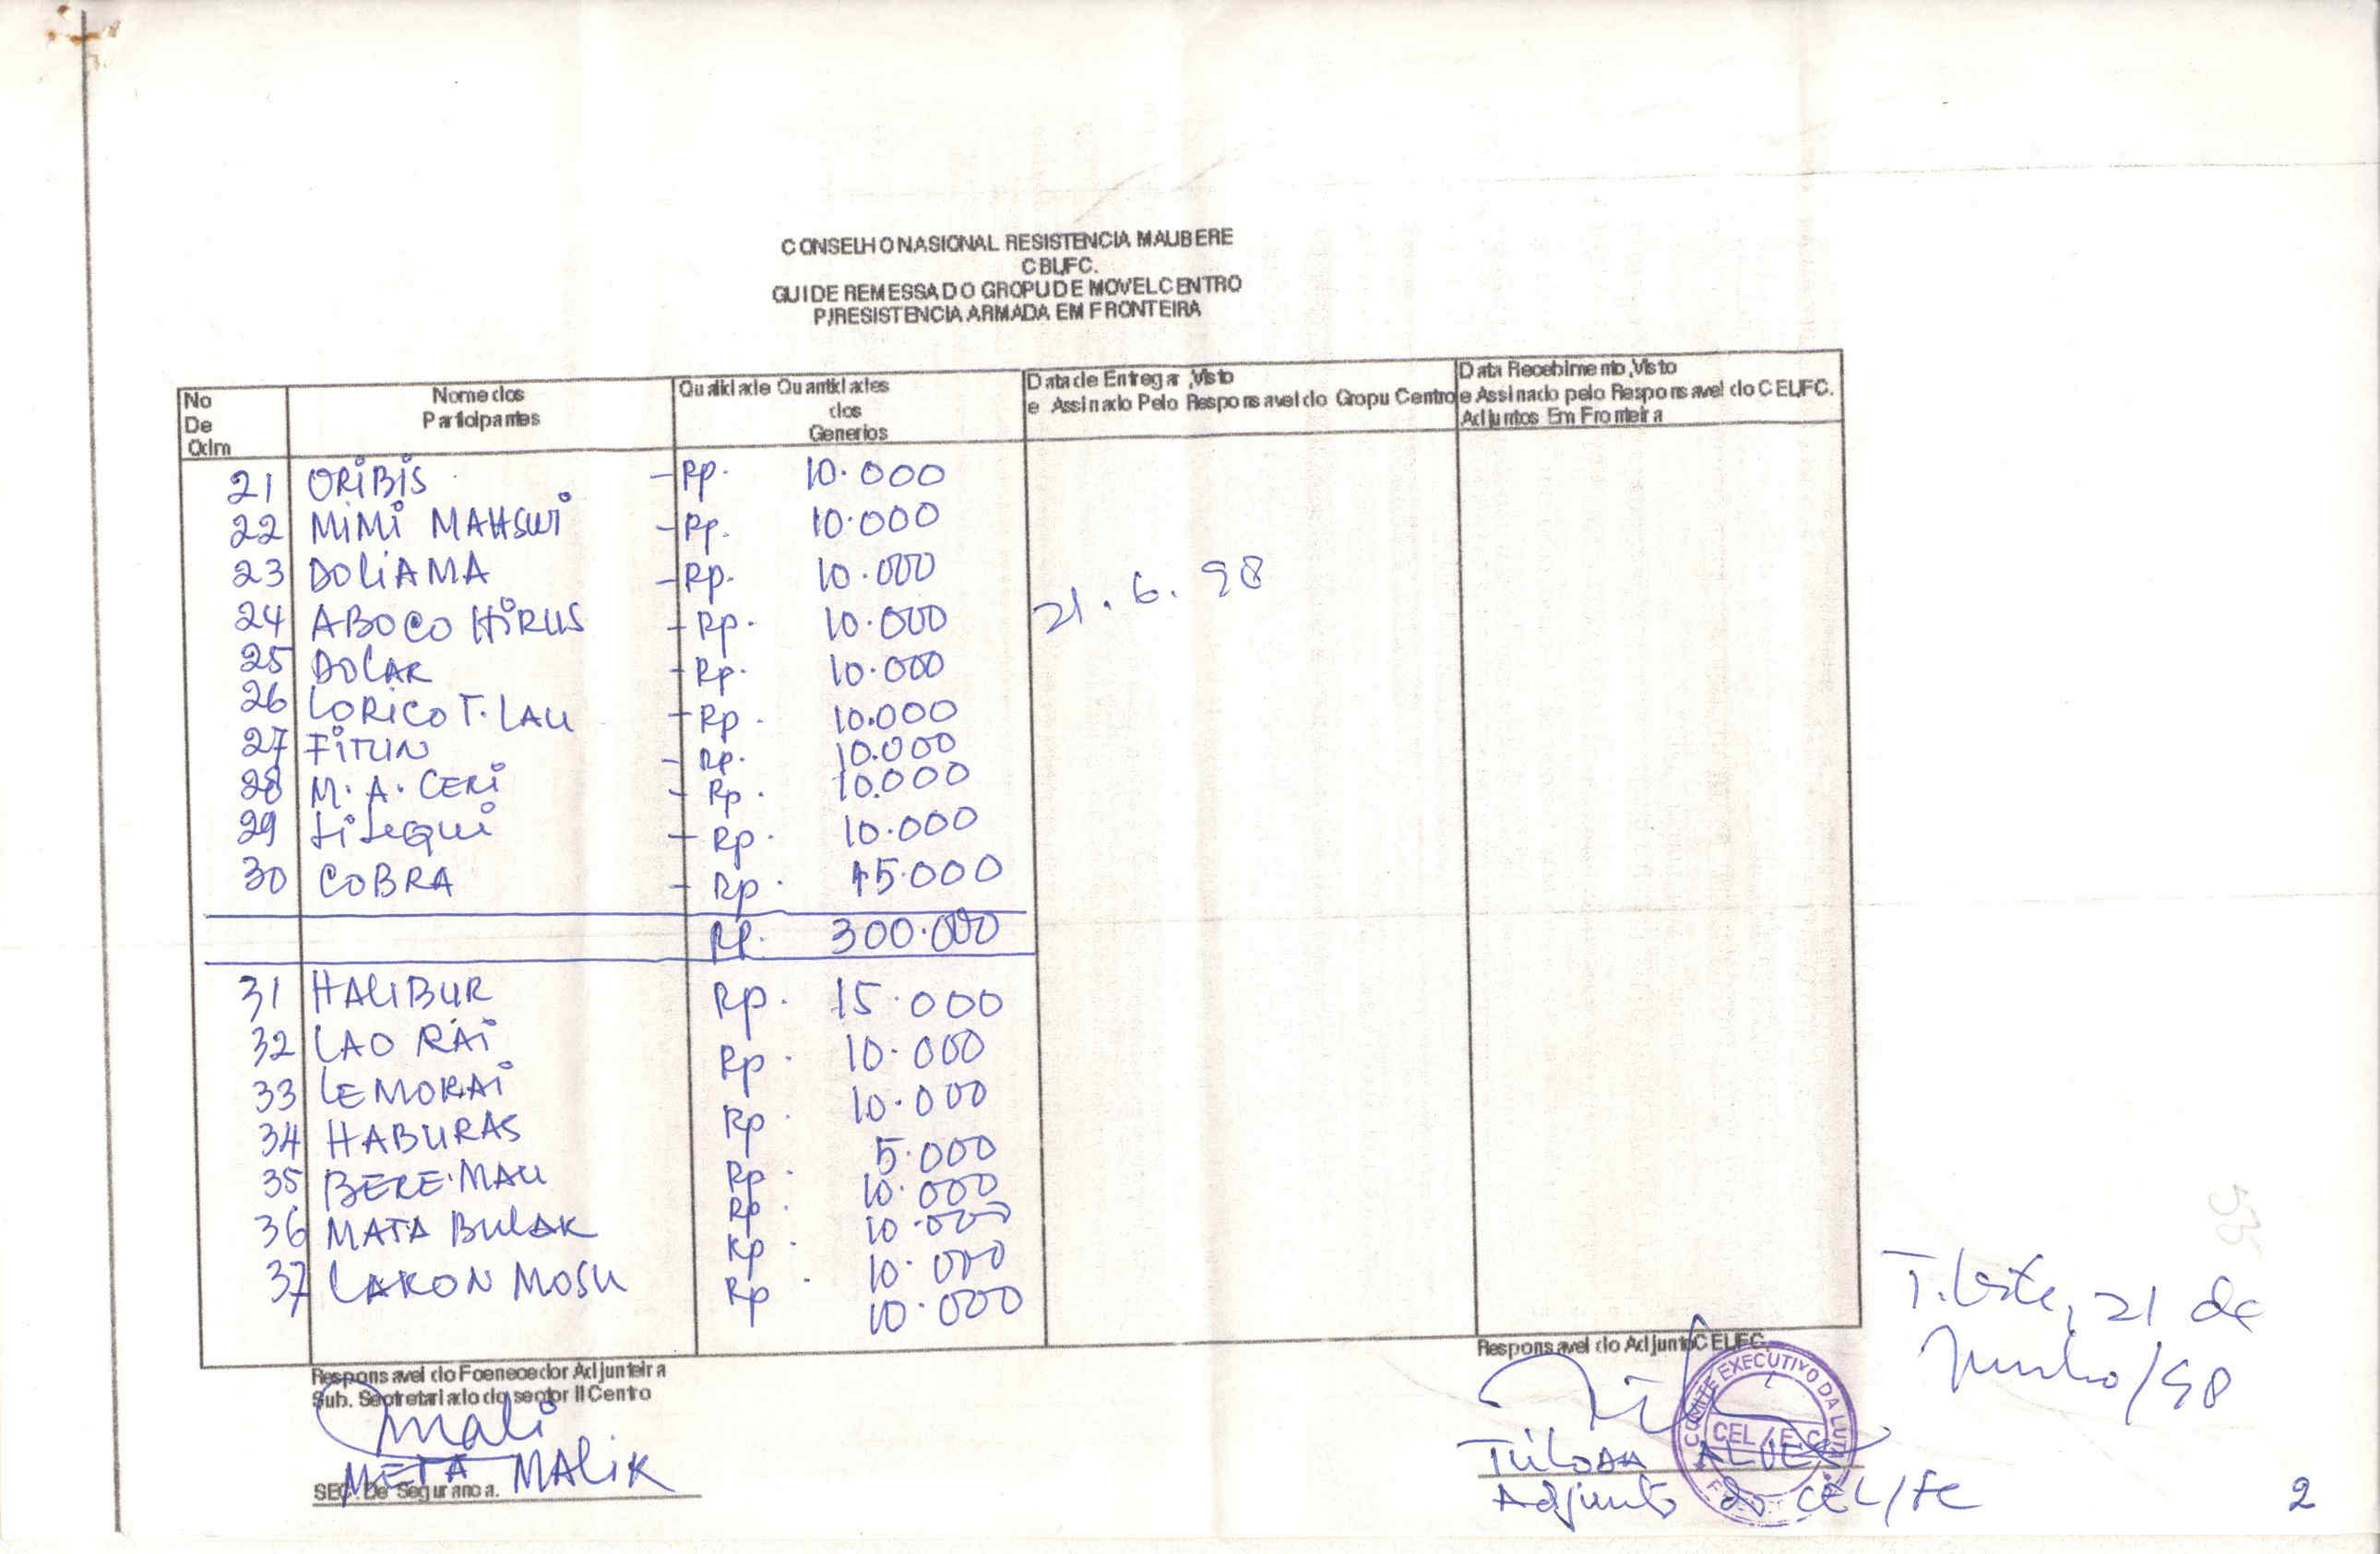 CONSELHO NASIONAL RESISTENCIA MAUBERE
CBI/FC.
GUI DE REMESSA DO GROPU DE MOVEL CENTRO
P/RESISTENCIA ARMADA EM FRONTEIRA
No De Odrn
Nome dos Participantes
Qualidade Quantidades dos Generios
Data de Entrega, Visto e Assinado Pelo Responsavel do Gropu Centro
Data Recebimento, Visto e Assinado pelo Responsavel do CEL/FC. Adjuntos Em Fronteira
21 ORIBIS - Rp. 10.000
22 MIMI MAHSWI - Rp. 10.000
23 DOLIAMA - Rp. 10.000
24 ABOCO HIRUS - Rp. 10.000
21.6.98
25 DOLAR - Rp. 10.000
26 LORICO T. LAU - Rp. 10.000
27 FITUN - Rp. 10.000
28 M. A. CERI - Rp. 10.000
29 - Rp. 10.000
30 COBRA - Rp. 15.000
Rp. 300.000
31 HALIBUR Rp. 15.000
32 LAO RAI Rp. 10.000
33 LEMORAI Rp. 10.000
34 HABURAS Rp. 5.000
35 BERE.MAU Rp. 10.000
36 MATA BULAK Rp. 10.000
37 LAKON MOSU Rp. 10.000
Rp. 10.000
T. Leste, 21 de
Junho/98
Responsavel do Foenecedor Adjunteira
Sub. Secretetariado do sector II Centro
mali
META MALIK
SEC. De Seguranca.
Responsavel do Adjunto CEL/FC.
COMITE EXECUTIVO DA LUTA
CEL / F.C
ALVES
Adjunto do CEL/FC
2